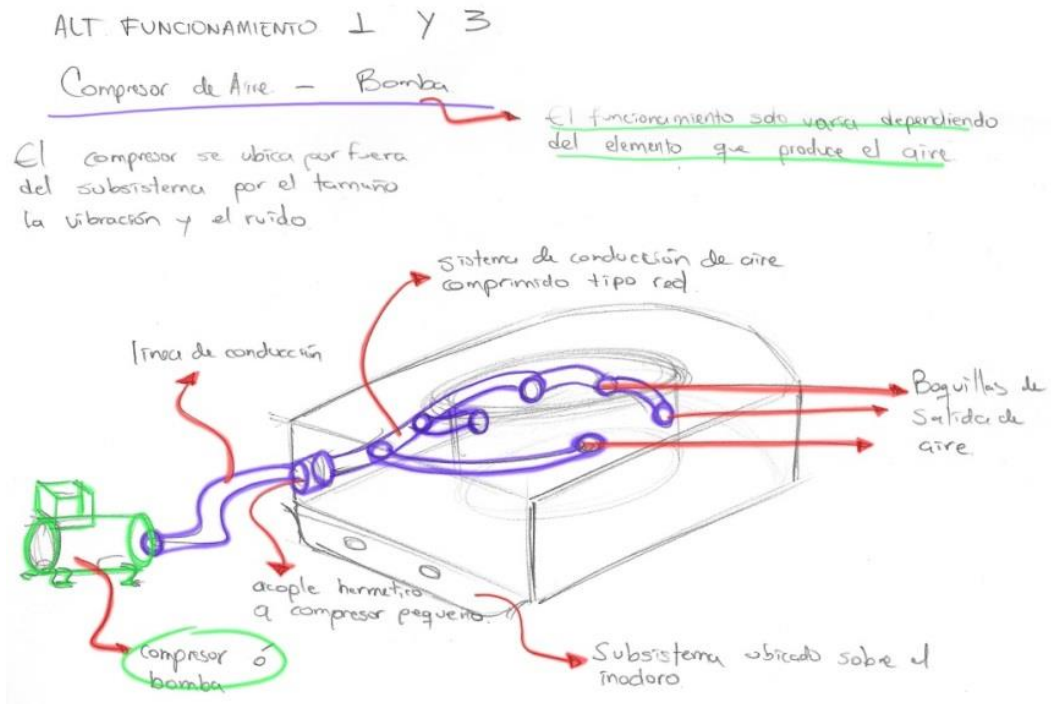 ALT FUNCIONAMIENTO 1 Y 3
Compresor de Aire - Bomba
El funcionamiento solo varia dependiendo
del elemento que produce el aire
El compresor se ubica por fuera
del subsistema por el tamaño
la vibración y el ruido
sistema de conducción de aire
comprimido tipo red.
linea de conducción
Boquillas de
Salida de
aire
acople hermetico
a compresor pequeño.
compresor ó
bomba
Subsistema ubicado sobre el
inodoro